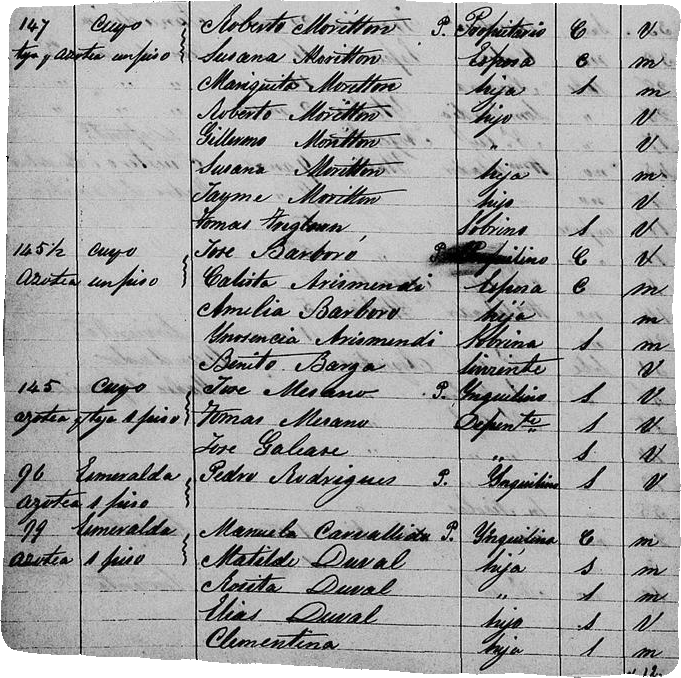 147 Cuyo Roberto Moritton P. Propietario C V
teja y azotea un piso Susana Moritton Esposa C m
Mariquita Moritton hija s m
Roberto Moritton hijo V
Gillermo Moritton " V
Susana Moritton hija m
Jayme Moritton hijo V
Tomas Sobrino s V
145 1/2 Cuyo Jose Barboró P. C V
Azotea un piso Calista Arismendi Esposa C m
Amelia Barboro hija m
Ynosencia Arismendi Sobrina s m
Benito Barga Sirviente V
145 Cuyo Jose Mesano P. Ynquilino s V
azotea y teja 1 piso Tomas Mesano Depente s V
Jose Galease " s V
96 Esmeralda Pedro Rodrigues P. Ynquilino s V
azotea 1 piso
99 Esmeralda Manuela P. Ynquilina C m
azotea 1 piso Matilde Duval hija s m
Rosita Duval " s m
Elias Duval hijo s V
Clementina hija s m
12